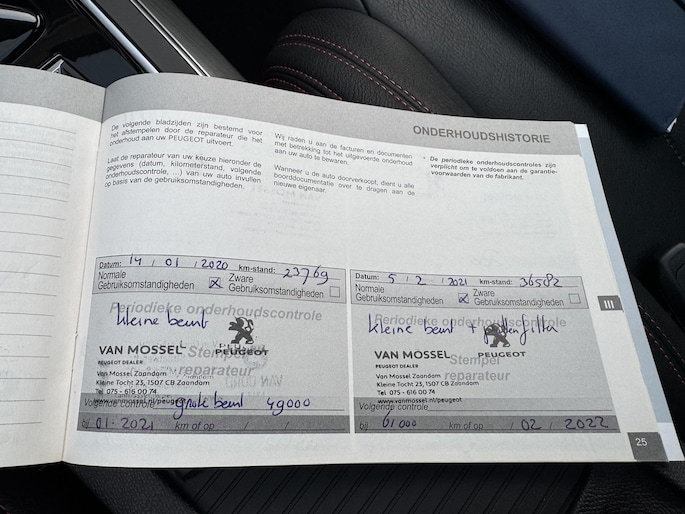 ONDERHOUDSHISTORIE
De volgende bladzijden zijn bestemd voor
het afstempelen door de reparateur die het
onderhoud aan uw PEUGEOT uitvoert.
Laat de reparateur van uw keuze hieronder de
gegevens (datum, kilometerstand, volgende
onderhoudscontrole, ...) van uw auto invullen
op basis van de gebruiksomstandigheden.
Wij raden u aan de facturen en documenten
met betrekking tot het uitgevoerde onderhoud
aan uw auto te bewaren.
Wanneer u de auto doorverkoopt, dient u alle
boorddocumentatie over te dragen aan de
nieuwe eigenaar.
• De periodieke onderhoudscontroles zijn
verplicht om te voldoen aan de garantie-
voorwaarden van de fabrikant.
Datum: 14 / 01 / 2020 km-stand: 23769
Normale
Gebruiksomstandigheden
Zware
Gebruiksomstandigheden
Periodieke onderhoudscontrole
kleine beurt
PEUGEOT
VAN MOSSEL
Stempel
PEUGEOT DEALER
reparateur
Van Mossel Zaandam
Kleine Tocht 23, 1507 CB Zaandam
Tel 075 - 616 00 74
www.vanmossel.nl/peugeot
Volgende controle grote beurt 49000
bij 01-2021 km of op / /
Datum: 5 / 2 / 2021 km-stand: 36582
Normale
Gebruiksomstandigheden
Zware
Gebruiksomstandigheden
Periodieke onderhoudscontrole
kleine beurt +
PEUGEOT
VAN MOSSEL
Stempel
PEUGEOT DEALER
reparateur
Van Mossel Zaandam
Kleine Tocht 23, 1507 CB Zaandam
Tel 075 - 616 00 74
www.vanmossel.nl/peugeot
Volgende controle
bij 61000 km of op / 02 / 2022
III
25